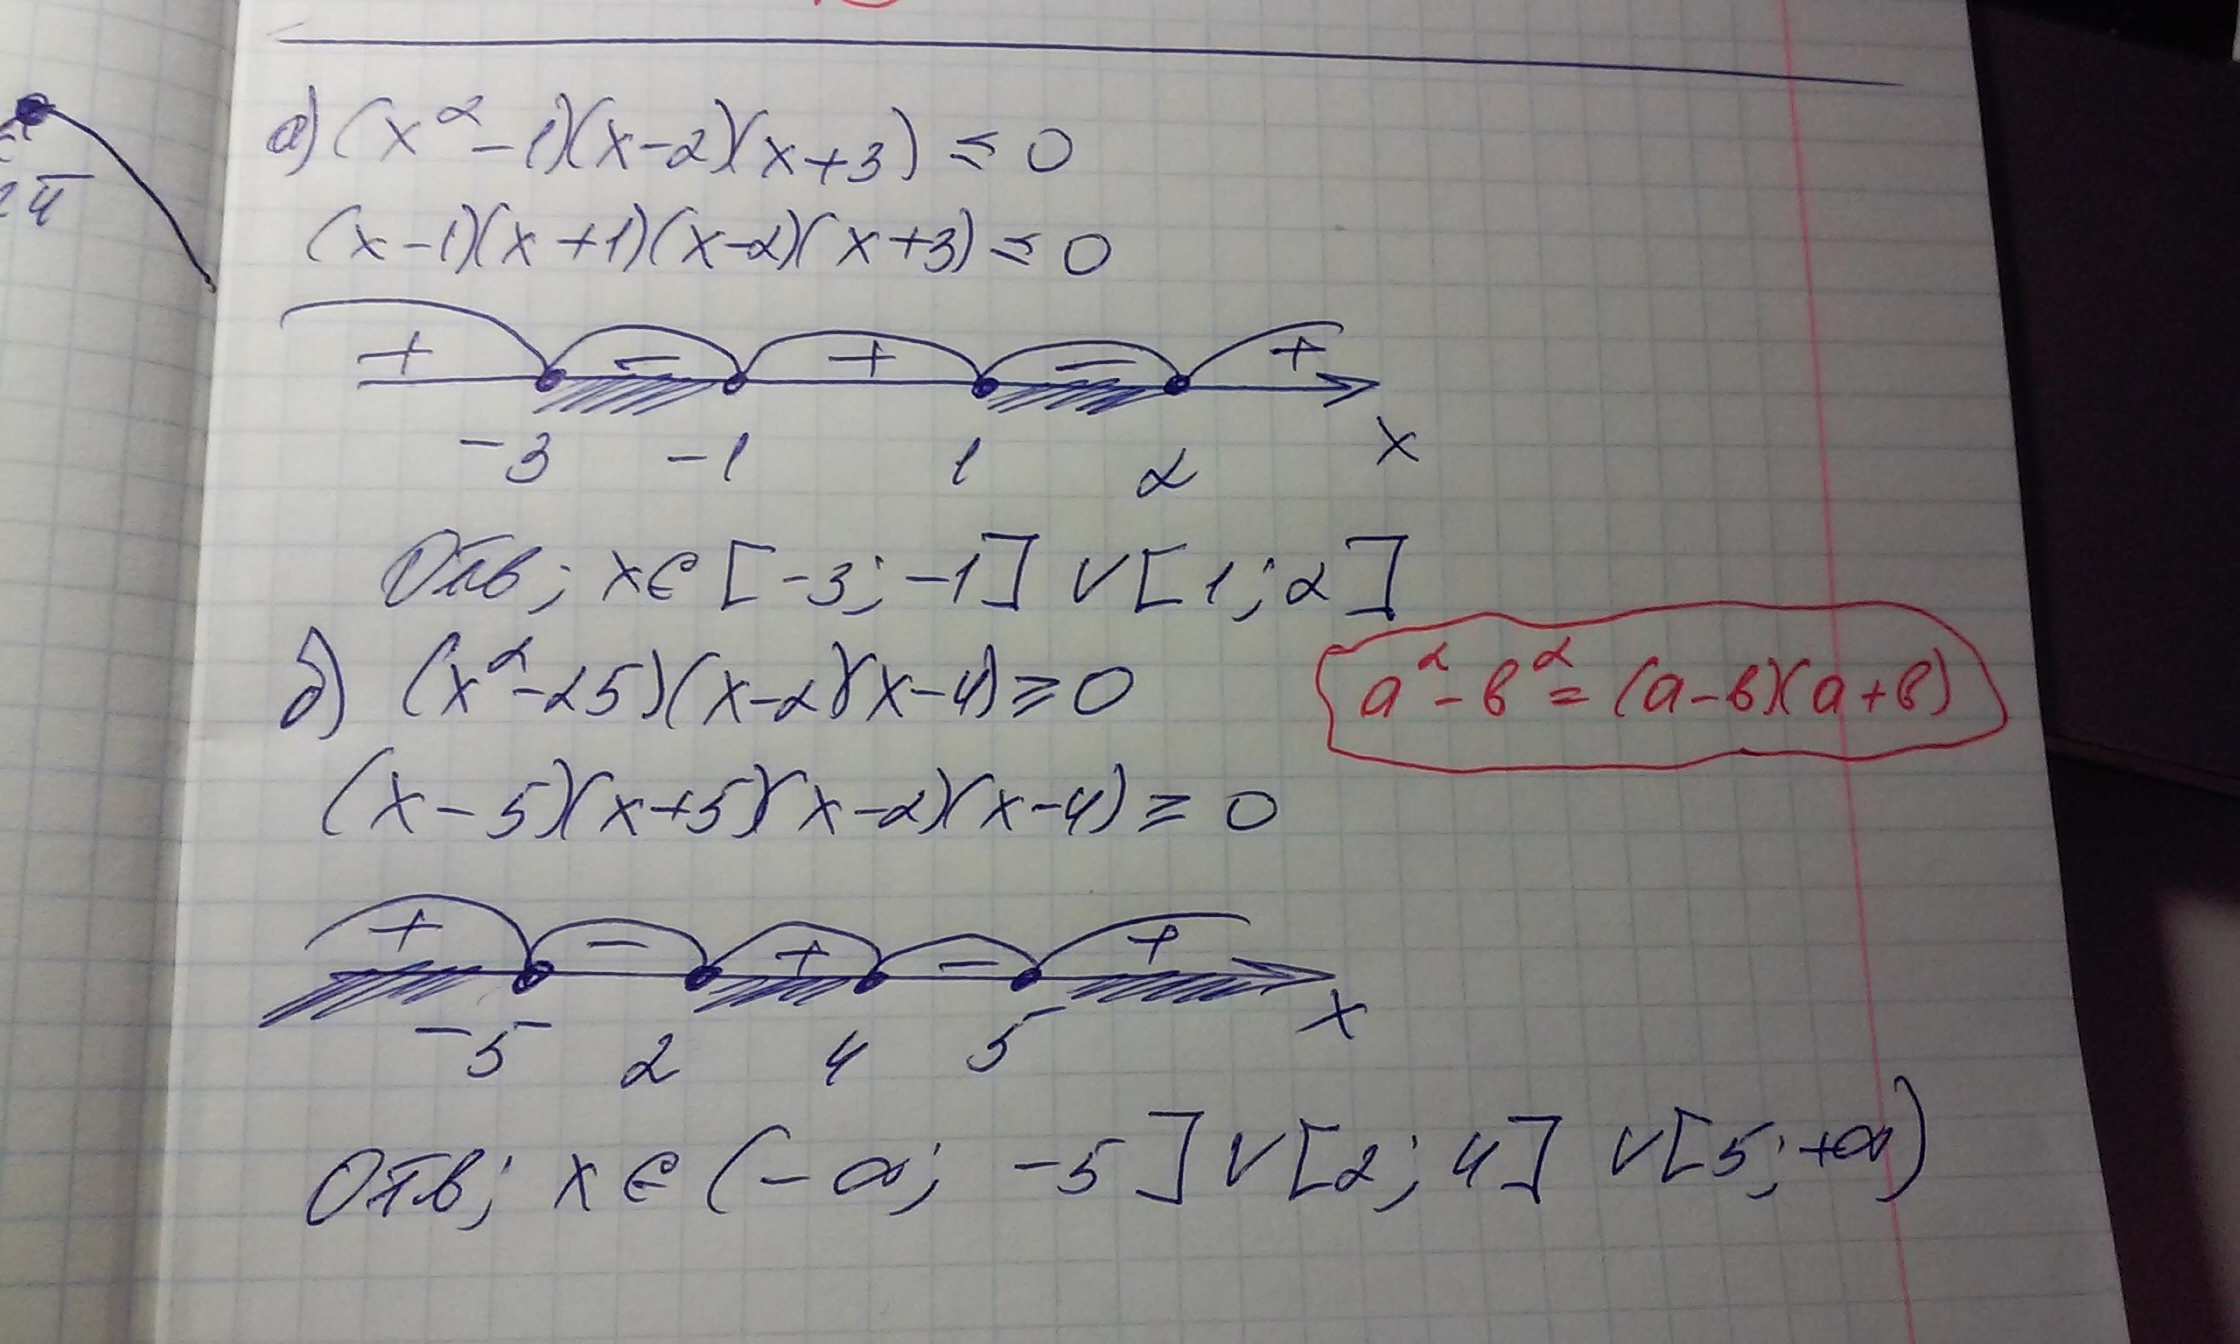 а) (x²-1)(x-2)(x+3) ≤ 0
(x-1)(x+1)(x-2)(x+3) ≤ 0
+ - + - +
-3 -1 1 2 x
Отв; x∈ [-3; -1] ∨ [1; 2]
б) (x²-25)(x-2)(x-4) ≥ 0
a²-b²=(a-b)(a+b)
(x-5)(x+5)(x-2)(x-4) ≥ 0
+ - + - +
-5 2 4 5 x
Отв; x ∈ (-∞; -5] ∨ [2; 4] ∨ [5; +∞)